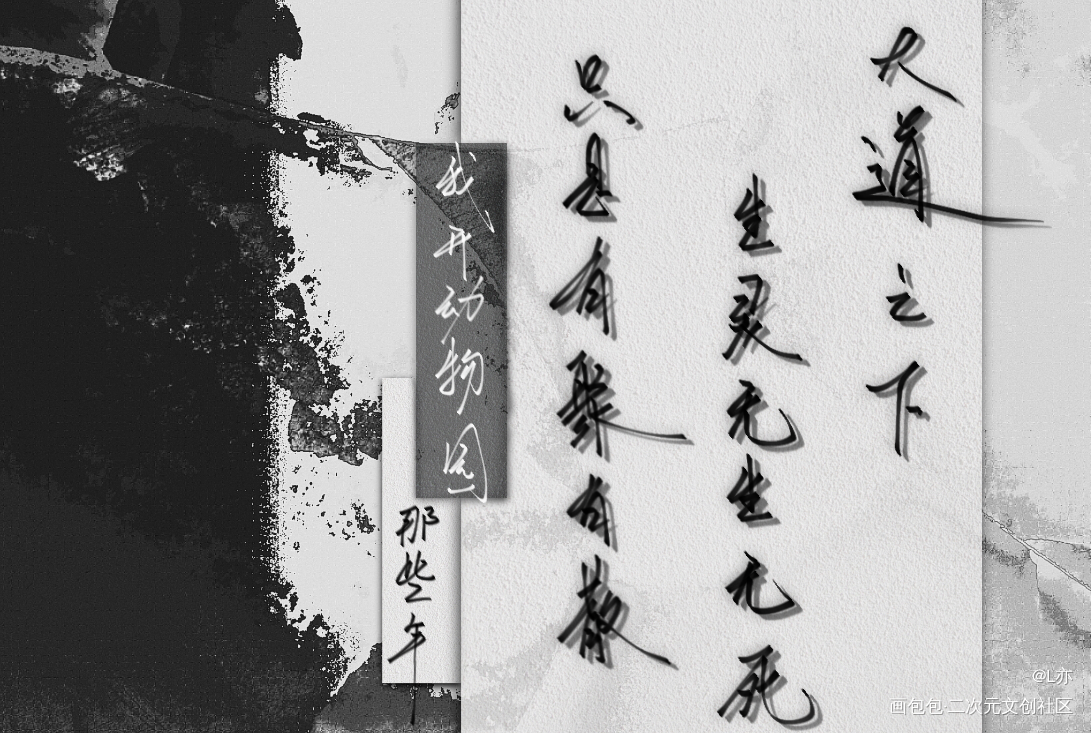 大道之下
生灵无生无死
只是有聚有散
我开动物园
那些年
@L亦
画包包·二次元文创社区